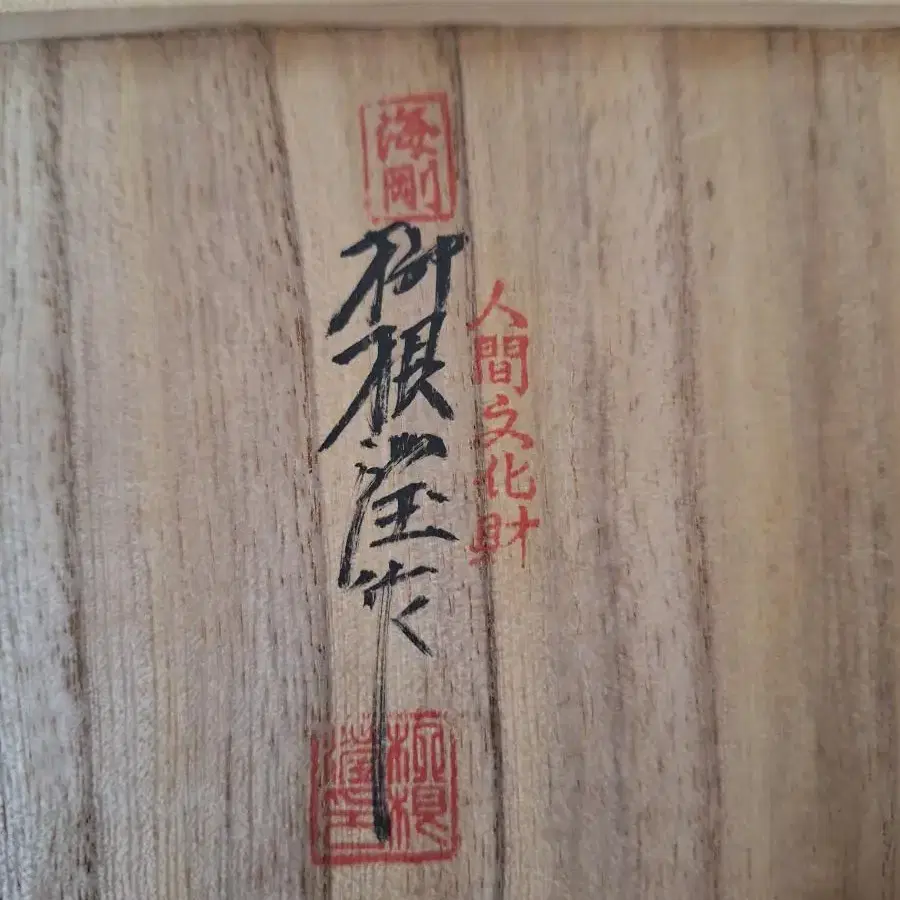 海剛
人間文化財
柳根瀅作
柳根
瀅